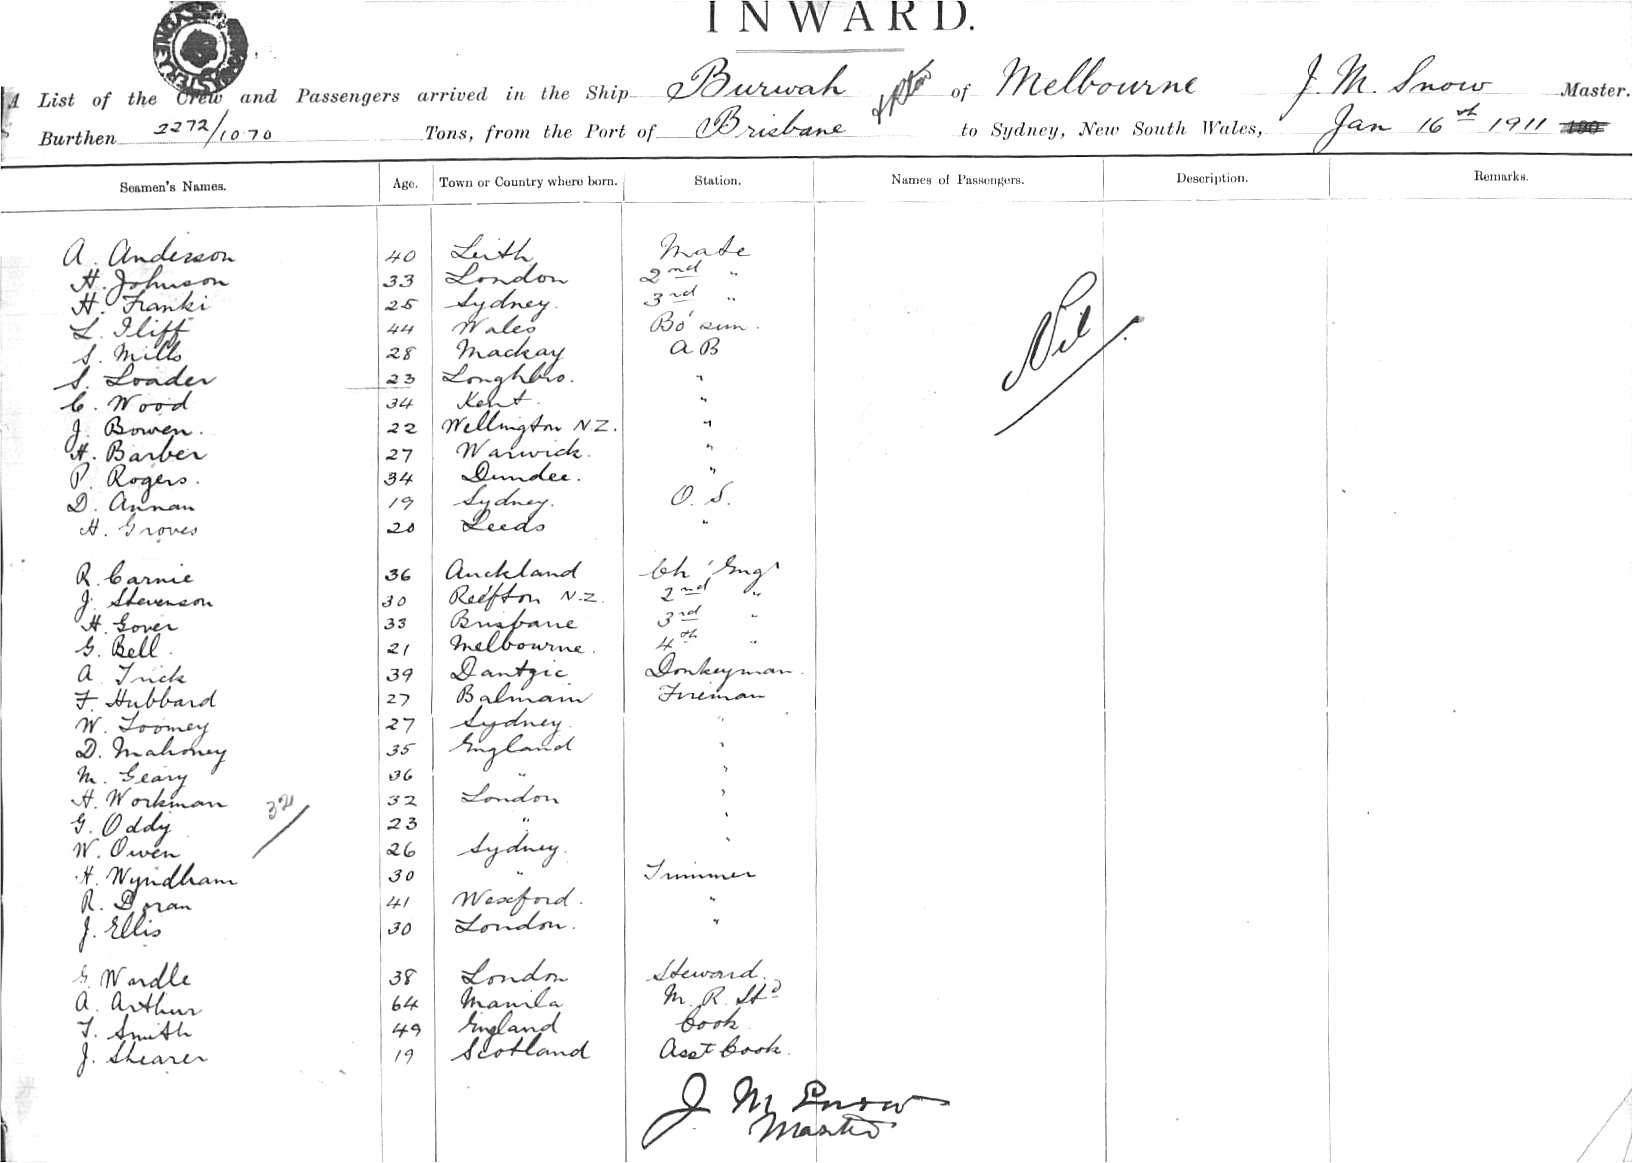 INWARD.
A List of the Crew and Passengers arrived in the Ship Burwah of Melbourne J. M. Snow Master.
Burthen 2272/1070 Tons, from the Port of Brisbane to Sydney, New South Wales, Jan 16th 1911
Seamen's Names. Age. Town or Country where born. Station. Names of Passengers. Description. Remarks.
A. Anderson 40 Leith Mate
H. Johnson 33 London 2nd "
H. Franki 25 Sydney. 3rd "
L. Iliff 44 Wales Bo'sun.
S. Mills 28 Mackay A B
S. Loader 23 Longhbro. "
C. Wood 34 Kent. "
J. Bowen. 22 Wellington N.Z. "
H. Barber 27 Warwick. "
P. Rogers. 34 Dundee. "
D. Annan 19 Sydney. O. S.
H. Groves 20 Leeds "
Nil
R. Carnie 36 Auckland Ch' Engr
J. Stevenson 30 Reefton N.Z. 2nd "
H. Gover 33 Brisbane 3rd "
G. Bell. 21 Melbourne. 4th "
A. Trick 39 Dantzic Donkeyman.
F. Hubbard 27 Balmain Fireman
W. Toomey 27 Sydney. "
D. Mahoney 35 England "
M. Geary 36 " "
H. Workman 32 London "
G. Oddy 23 " "
W. Owen 26 Sydney. "
H. Wyndham 30 " Trimmer
R. Doran 41 Wexford. "
J. Ellis 30 London. "
G. Wardle 38 London Steward.
A. Arthur 64 Manila M. R. Std
T. Smith 49 England Cook
J. Shearer 19 Scotland Asst Cook.
J. M. Snow
Master